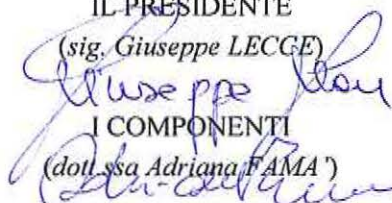 IL PRESIDENTE
(sig. Giuseppe LECCE)
Giuseppe
I COMPONENTI
(dott.ssa Adriana FAMA')